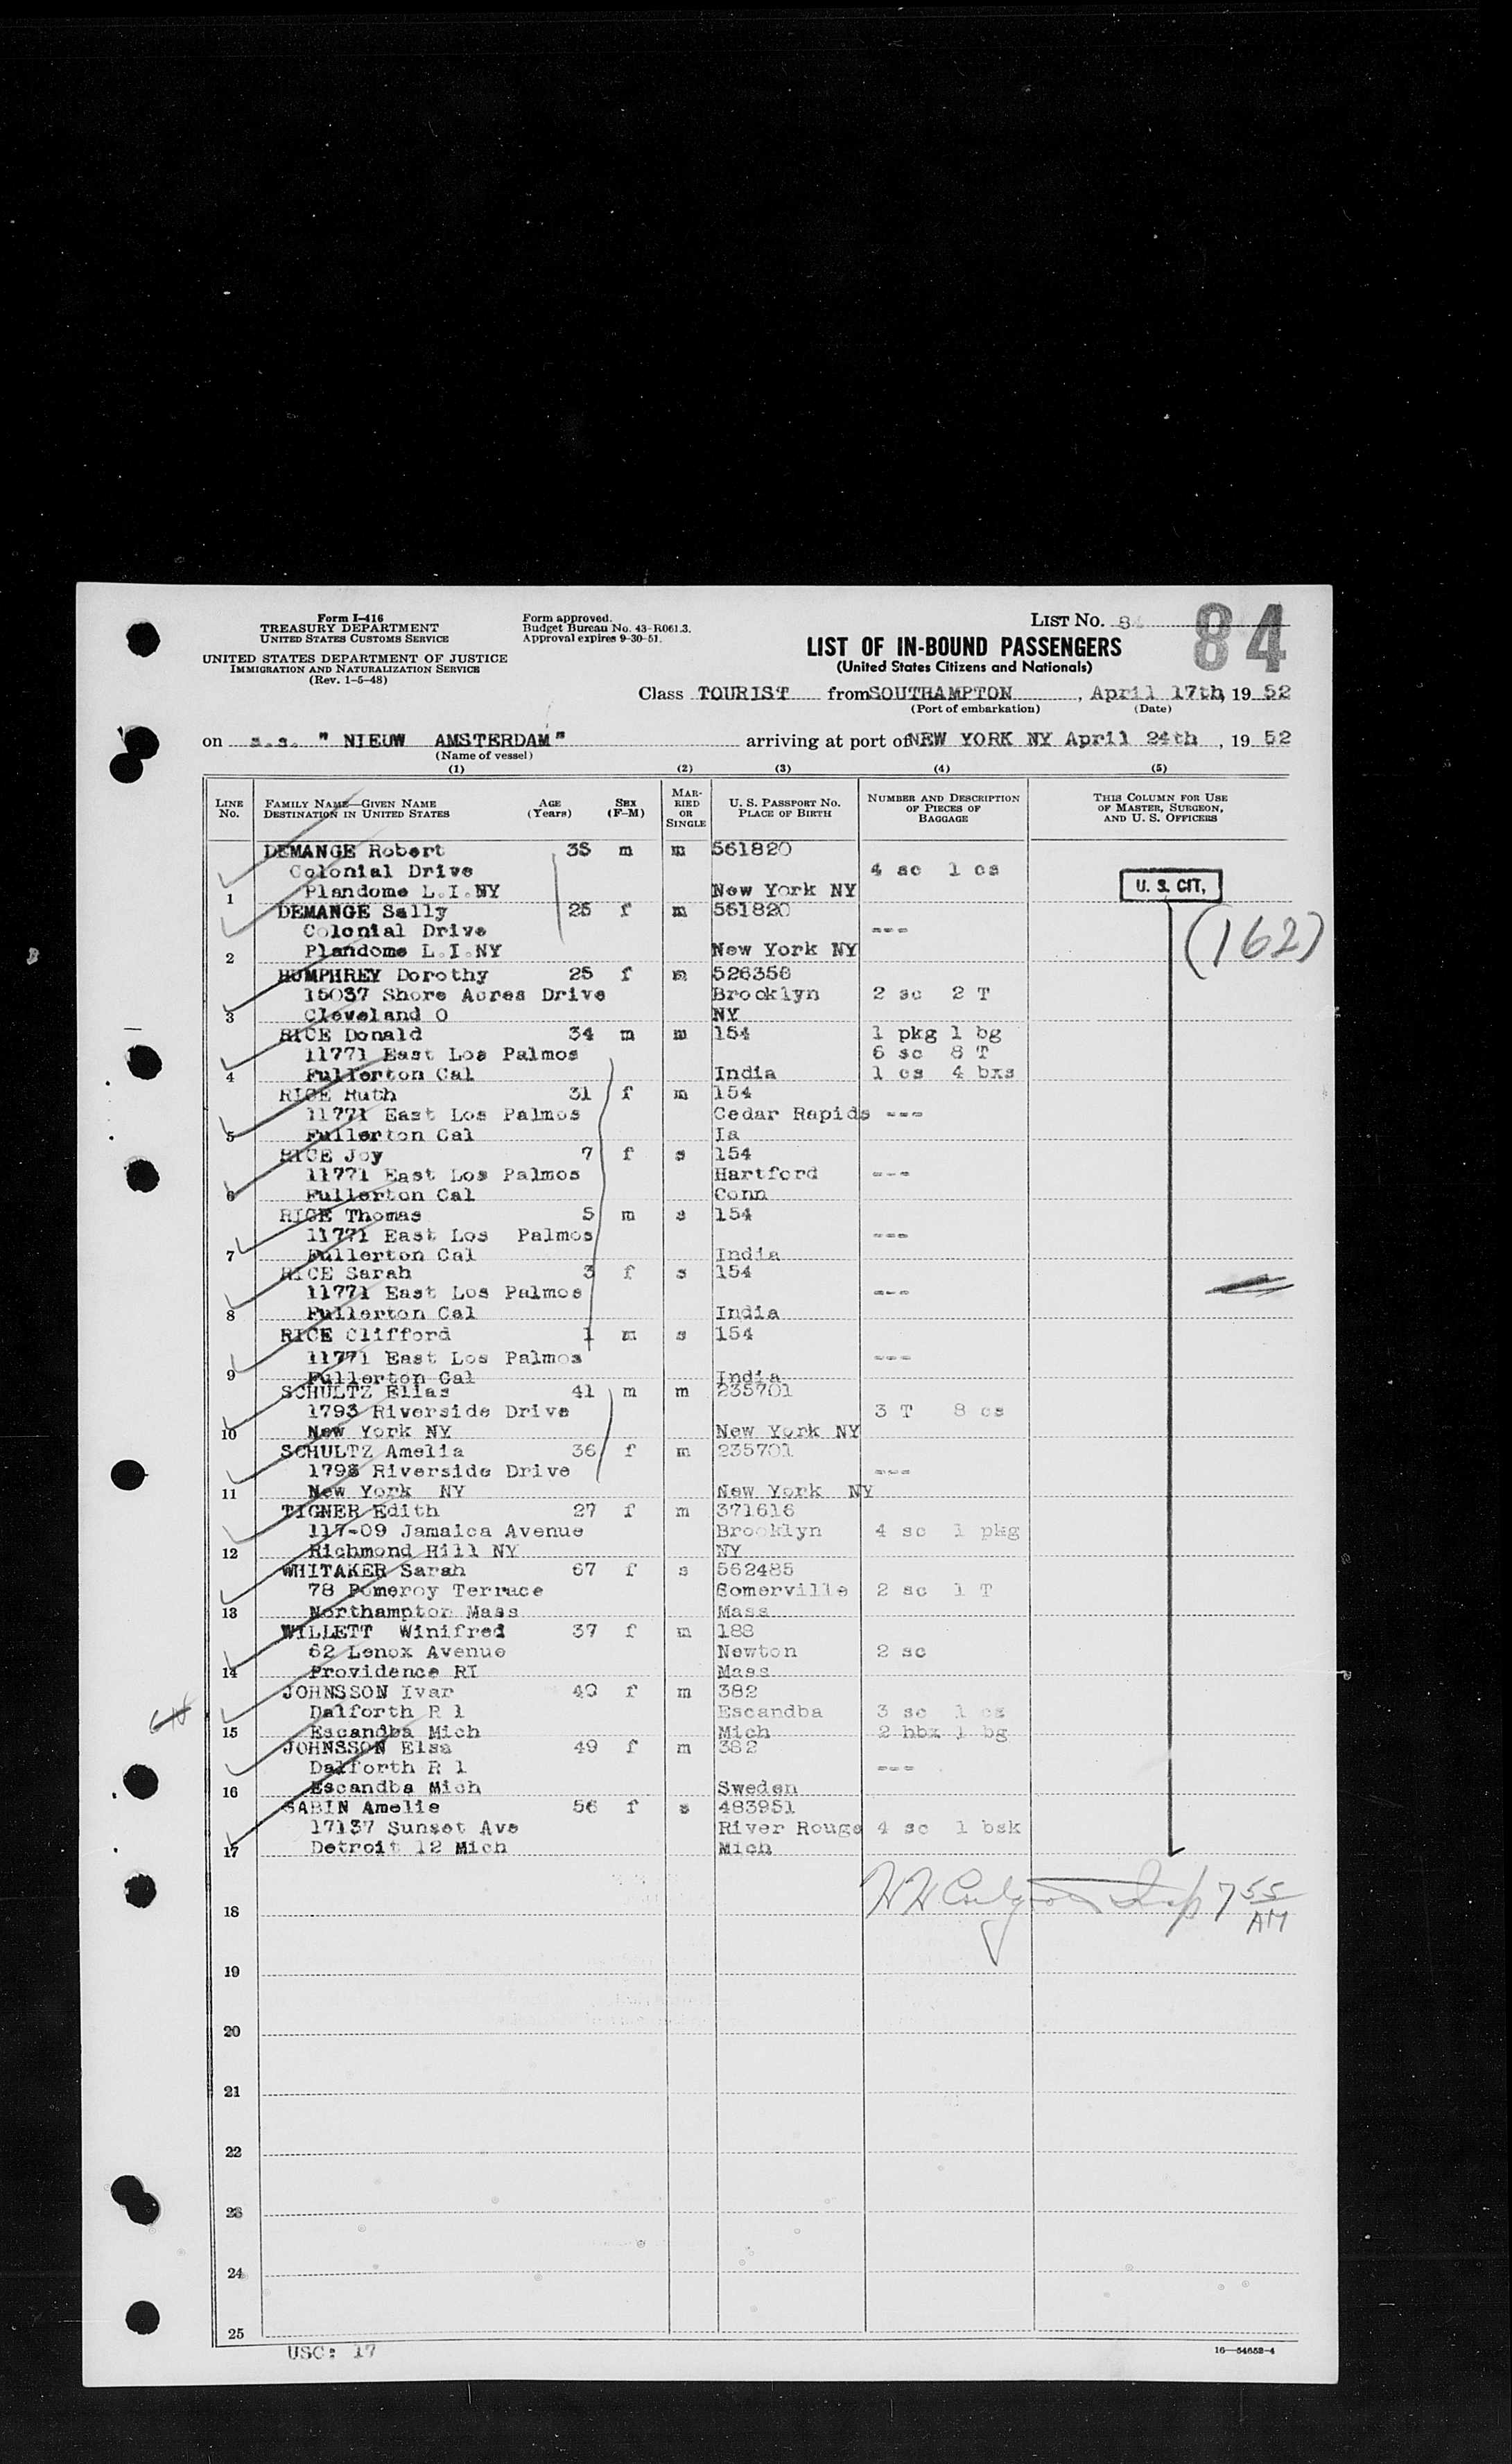 Form I-416
TREASURY DEPARTMENT
UNITED STATES CUSTOMS SERVICE
UNITED STATES DEPARTMENT OF JUSTICE
IMMIGRATION AND NATURALIZATION SERVICE
(Rev. 1-5-48)
Form approved.
Budget Bureau No. 43-R061.3.
Approval expires 9-30-51.
LIST NO. 84
84
LIST OF IN-BOUND PASSENGERS
(United States Citizens and Nationals)
Class TOURIST from SOUTHAMPTON, April 17th, 19 52
(Port of embarkation) (Date)
on s.s. " NIEUW AMSTERDAM" arriving at port of NEW YORK NY April 24th, 19 52
(Name of vessel)
(1) (2) (3) (4) (5)
LINE NO. FAMILY NAME—GIVEN NAME DESTINATION IN UNITED STATES AGE (Years) SEX (F-M) MARRIED OR SINGLE U. S. PASSPORT NO. PLACE OF BIRTH NUMBER AND DESCRIPTION OF PIECES OF BAGGAGE THIS COLUMN FOR USE OF MASTER, SURGEON, AND U. S. OFFICERS
DEMANGE Robert 35 m m 561820
Colonial Drive 4 sc 1 cs
1 Plandome L.I.NY New York NY U. S. CIT.
DEMANGE Sally 25 f m 561820
Colonial Drive --- (162)
2 Plandome L.I.NY New York NY
HUMPHREY Dorothy 25 f m 526358
15037 Shore Acres Drive Brooklyn 2 sc 2 T
3 Cleveland O NY
RICE Donald 34 m m 154 1 pkg 1 bg
11771 East Los Palmos 6 sc 8 T
4 Fullerton Cal India 1 cs 4 bxs
RICE Ruth 31 f m 154
11771 East Los Palmos Cedar Rapids ---
5 Fullerton Cal Ia
RICE Joy 7 f s 154
11771 East Los Palmos Hartford ---
6 Fullerton Cal Conn
RICE Thomas 5 m s 154
11771 East Los Palmos ---
7 Fullerton Cal India
RICE Sarah 3 f s 154
11771 East Los Palmos ---
8 Fullerton Cal India
RICE Clifford 1 m s 154
11771 East Los Palmos ---
9 Fullerton Cal India
SCHULTZ Elias 41 m m 235701
1793 Riverside Drive 3 T 8 cs
10 New York NY New York NY
SCHULTZ Amelia 36 f m 235701
1793 Riverside Drive ---
11 New York NY New York NY
TIGNER Edith 27 f m 371616
117-09 Jamaica Avenue Brooklyn 4 sc 1 pkg
12 Richmond Hill NY NY
WHITAKER Sarah 67 f s 562485
78 Pomeroy Terrace Somerville 2 sc 1 T
13 Northampton Mass Mass
WILLETT Winifred 37 f m 188
62 Lenox Avenue Newton 2 sc
14 Providence RI Mass
JOHNSSON Ivar 49 f m 382
Dalforth R 1 Escandba 3 sc 1 cs
15 Escandba Mich Mich 2 hbx 1 bg
JOHNSSON Elsa 49 f m 382
Dalforth R 1 ---
16 Escandba Mich Sweden
SABIN Amelie 56 f s 483951
17137 Sunset Ave River Rouge 4 sc 1 bsk
17 Detroit 12 Mich Mich
18 Insp 7 55 AM
19
20
21
22
23
24
25
USC: 17
16—54652-4